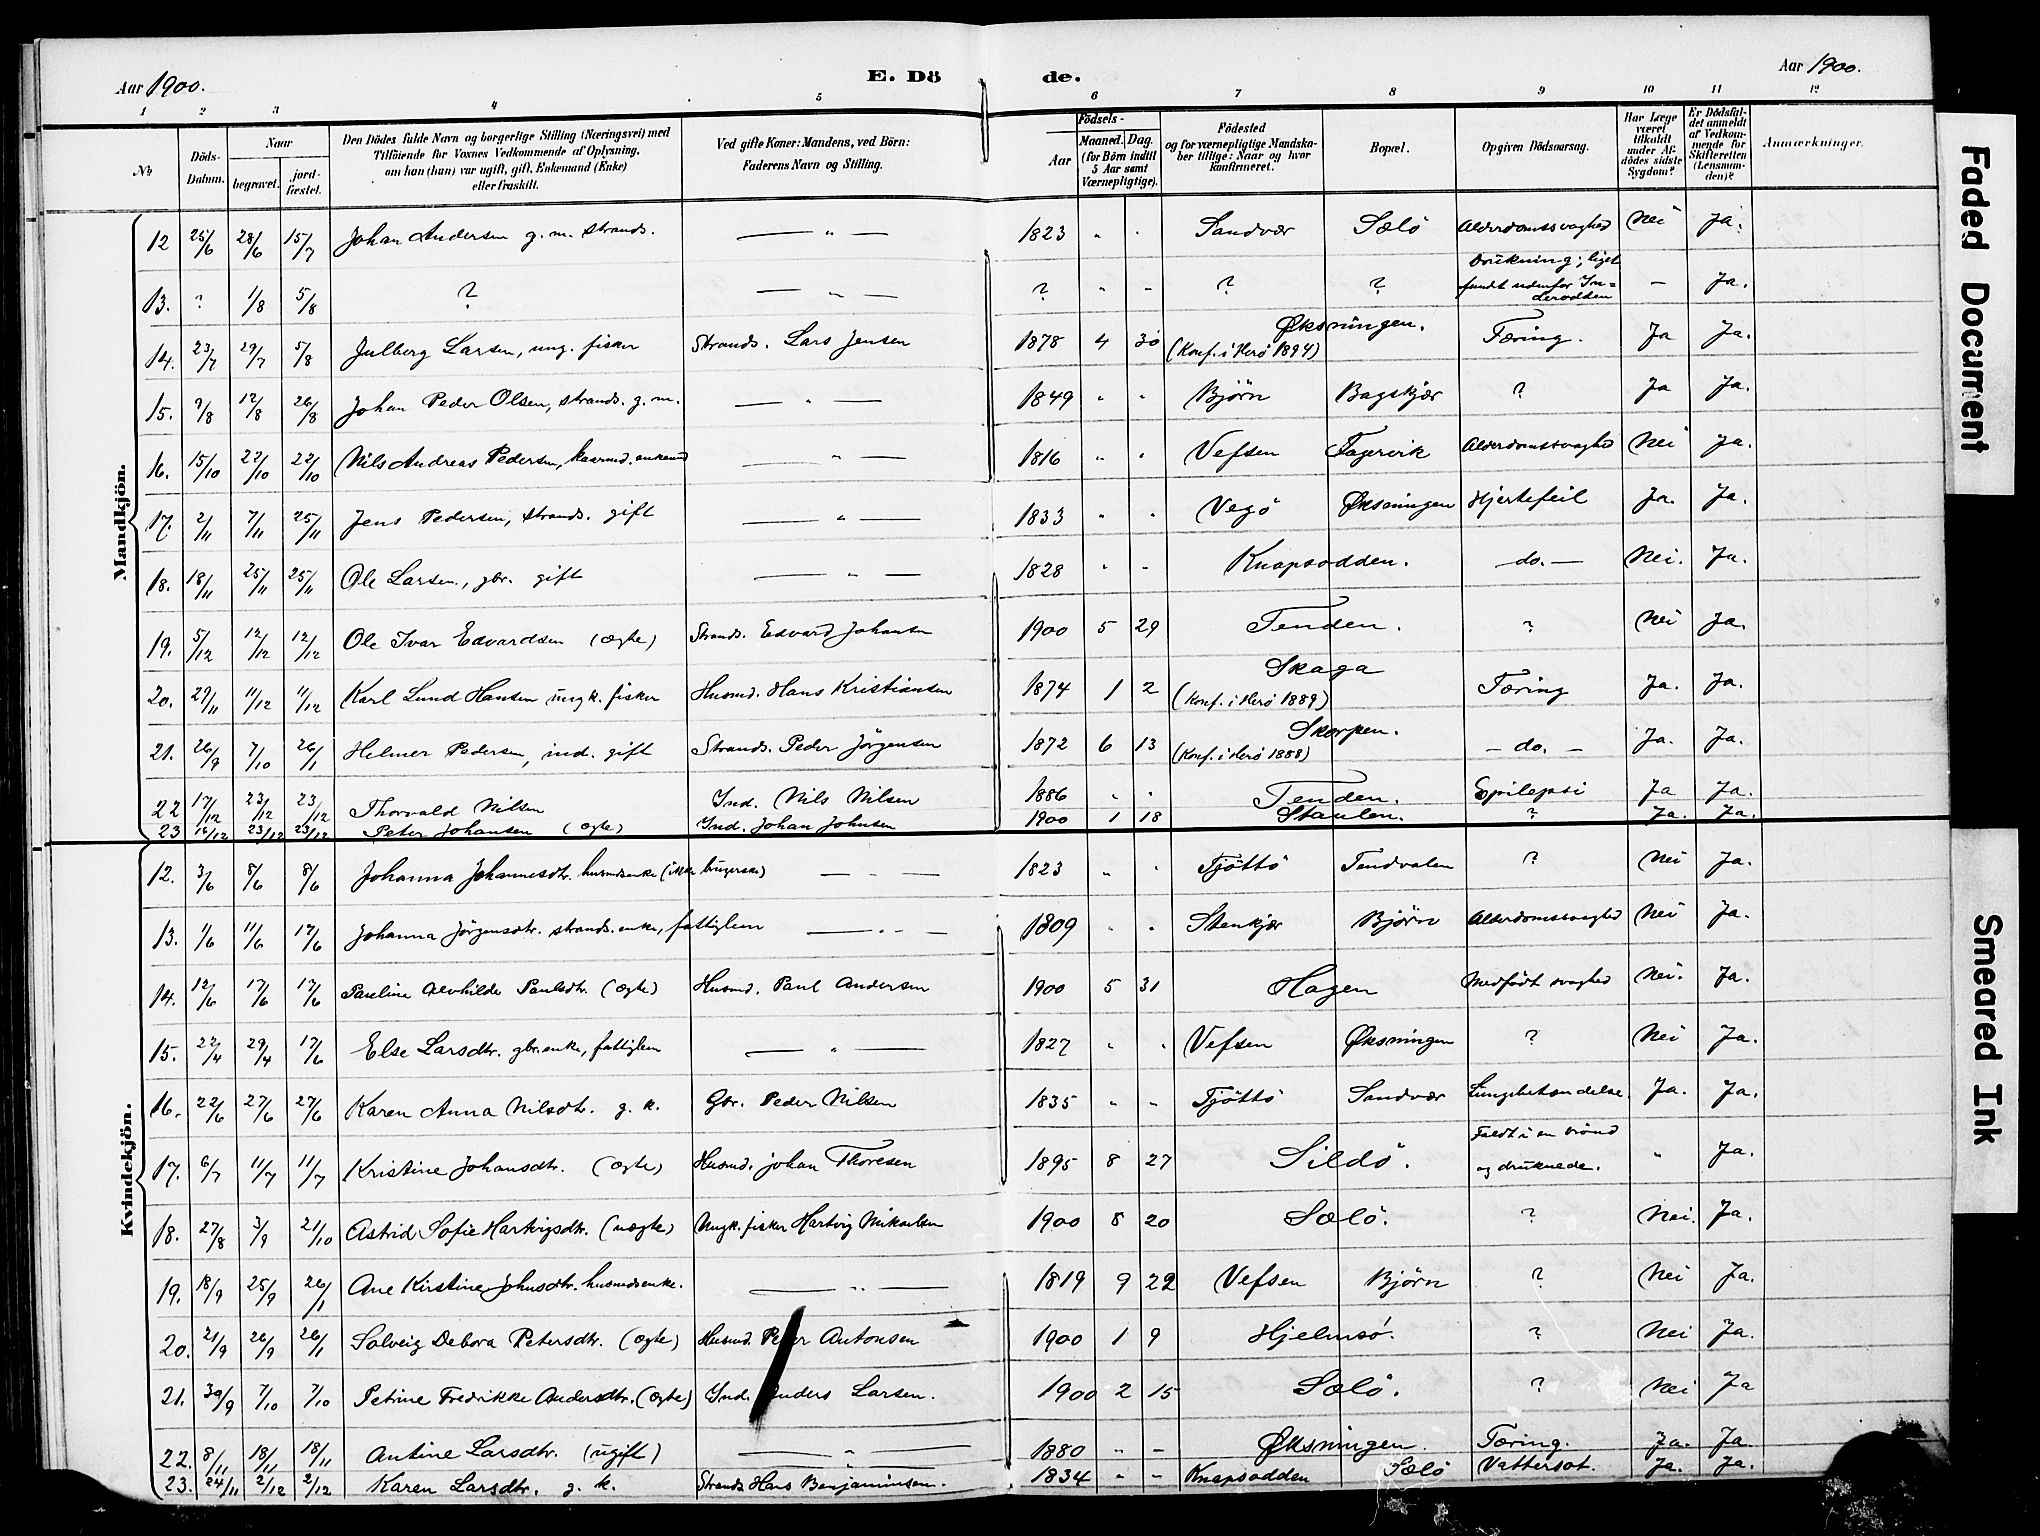 Aar 1900. E. Dö de. Aar 1900.
1 2 3 4 5 6 7 8 9 10 11 12
No Döds-Datum. Naar begravet. jord-fæstet. Den Dödes fulde Navn og borgerlige Stilling (Næringsvei) med Tilföiende for Voxnes Vedkommende af Oplysning, om han (hun) var ugift, gift, Enkemand (Enke) eller fraskilt. Ved gifte Koner: Mandens, ved Börn: Faderens Navn og Stilling. Födsels- Aar Maaned. Dag. (for Börn indtil 5 Aar samt Værnepligtige). Födested og for værnepligtige Mandskaber tillige: Naar og hvor konfirmeret. Bopæl. Opgiven Dödsaarsag. Har Læge været tilkaldt under Afdödes sidste Sygdom? Er Dödsfaldet anmeldt af Vedkommende for Skifteretten (Lensmanden)? Anmærkninger.
Mandkjön.
12 25/6 28/6 15/7 Johan Andersen g. m. strands. — " — 1823 " " Sandvær Sølø Alderdomssvaghed Nei Ja.
13. ? 1/8 5/8 ? — " — ? " " ? ? Drukning; liget fundt udenfor Inderodden — Ja.
14. 23/7 29/7 5/8 Julberg Larsen, ung. fisker Strands. Lars Jensen 1878 4 30 Øksningen. (Konf. i Herø 1894) Tæring. Ja Ja.
15. 9/8 12/8 26/8 Johan Peder Olsen, strands. g. m. — " — 1849 " " Bjørn Bagskjær ? Ja Ja.
16. 15/10 22/10 22/10 Nils Andreas Pedersen, kaarmd. enkemd — " — 1816 " " Vefsen Fagervik Alderdomssvaghed Nei Ja.
17. 2/11 7/11 25/11 Jens Pedersen, strands. gift — " — 1833 " " Vegö Øksningen Hjertefeil Ja. Ja.
18. 18/11 25/11 25/11 Ole Larsen, gbr. gift — " — 1828 " " Knapsodden. — do. — Nei. Ja.
19. 5/12 12/12 12/12 Ole Ivar Edvardsen (ægte) Strands. Edvard Johansen 1900 5 29 Tenden. ? Nei Ja.
20. 29/11 11/12 11/12 Karl Lund Hansen ungk. fisker Husmd. Hans Kristiansen 1874 1 2 Skaga (Konf. i Herø 1889) Tæring Ja. Ja.
21. 26/9 7/10 26/1 Helmer Pedersen, ind. gift Strands. Peder Jörgensen 1872 6 13 Skorpen. (Konf. i Herø 1888) — do. — Ja. Ja.
22 17/12 23/12 23/12 Thorvald Nilsen Ind. Nils Nilsen 1886 " " Tenden. Epilepsi Ja Ja.
23 16/12 23/12 23/12 Peter Johansen (ægte) Ind. Johan Johnsen 1900 1 18 Staulen. ? Ja. Ja.
Kvindekjön.
12. 3/6 8/6 8/6 Johanna Johannesdtr. husmdsenke (ikke brugerske) — " — 1823 " " Tjöttö Tendvalen ? Nei Ja.
13. 1/6 11/6 17/6 Johanna Jörgensdtr. strands. enke, fattiglem — " — 1809 " " Stenkjær Bjørn Alderdomssvaghed Nei Ja.
14. 12/6 17/6 17/6 Pauline Alvhilde Paulsdtr. (ægte) Husmd. Paul Andersen 1900 5 31 Hagen Medfödt svaghed Nei. Ja.
15. 22/4 29/4 17/6 Else Larsdtr. gbr.enke, fattiglem — " — 1827 " " Vefsen Øksningen ? Nei Ja.
16. 22/6 27/6 27/6 Karen Anna Nilsdtr. g. k. Gbr. Peder Nilsen 1835 " " Tjöttö Sandvær Lungebetændelse. Ja. Ja.
17. 6/7 11/7 11/7 Kristine Johansdtr. (ægte) Husmd. Johan Thoresen 1895 8 27 Sildö. Faldt i en brönd og druknede. " Ja.
18. 27/8 3/9 21/10 Astrid Sofie Hartvigsdtr. (uægte) Ungk. fisker Hartvig Mikaelsen 1900 8 20 Sølö. ? Nei. Ja.
19. 18/9 25/9 26/1 Ane Kirstine Johnsdtr. husmdsenke. — " — 1819 9 22 Vefsen Bjørn ? Nei Ja.
20. 21/9 26/9 26/1 Solveig Debora Petersdtr. (ægte) Husmd. Peter Antonsen 1900 1 9 Hjelmsö. ? Nei Ja.
21. 30/9 7/10 7/10 Petrine Fredrikke Andersdtr. (ægte) Ind. Anders Larsen. 1900 2 15 Sølö. ? Nei Ja
22. 8/11 18/11 18/11 Antine Larsdtr. (ugift) — " — 1880 " " Øksningen. Tæring. Ja. Ja.
23. 24/11 2/12 2/12 Karen Larsdtr. g. k. Strands Hans Benjaminsen. 1834 " " Knapsodden Sølö Vattersot. Ja. Ja.
Faded Document
Smeared Ink